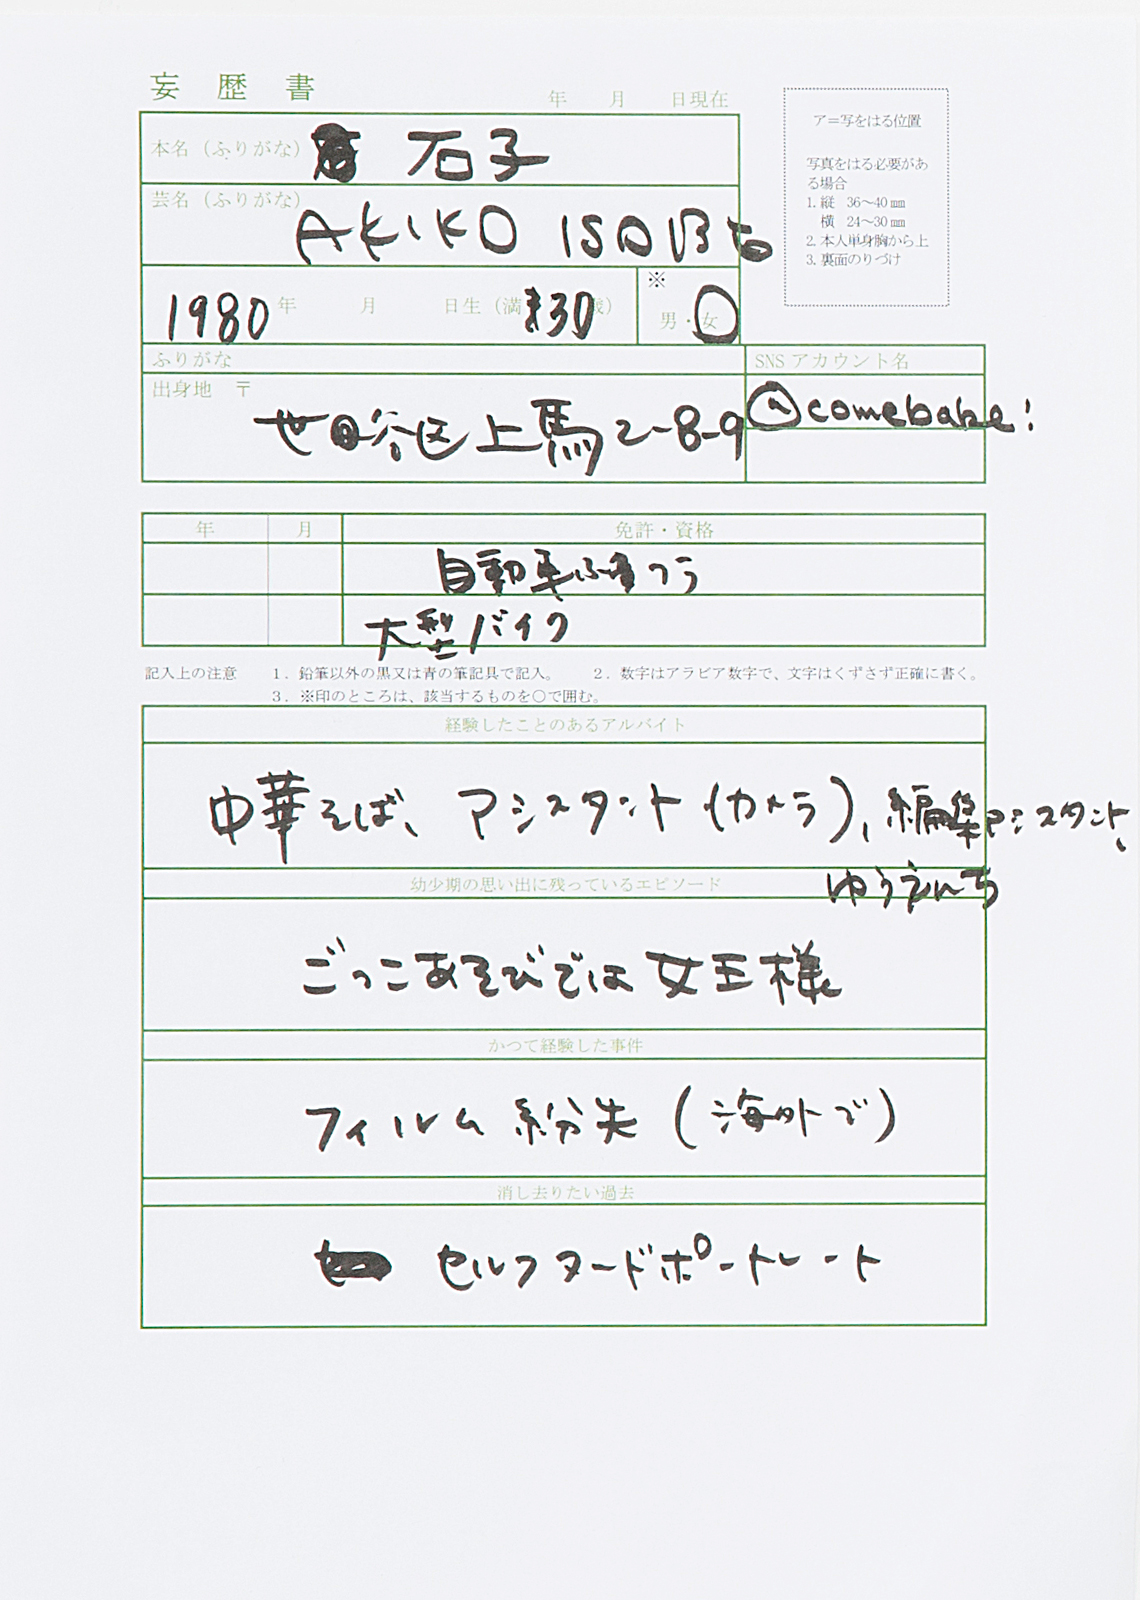 妄歴書
年 月 日現在
本名（ふりがな） 石子
芸名（ふりがな） AKIKO ISOBE
1980年 月 日生（満30歳） ※ 男・女
ふりがな
SNS アカウント名
出身地 〒 世田谷区上馬2-8-9
@comebabe!
ア＝写をはる位置
写真をはる必要があ
る場合
1. 縦 36～40㎜
横 24～30㎜
2. 本人単身胸から上
3. 裏面のりづけ
年 月 免許・資格
自動車ふつう
大型バイク
記入上の注意 1．鉛筆以外の黒又は青の筆記具で記入。 2．数字はアラビア数字で、文字はくずさず正確に書く。
3．※印のところは、該当するものを○で囲む。
経験したことのあるアルバイト
中華そば、アシスタント(カメラ)、編集アシスタント、
ゆうえんち
幼少期の思い出に残っているエピソード
ごっこあそびでは女王様
かつて経験した事件
フィルム紛失(海外で)
消し去りたい過去
セルフヌードポートレート